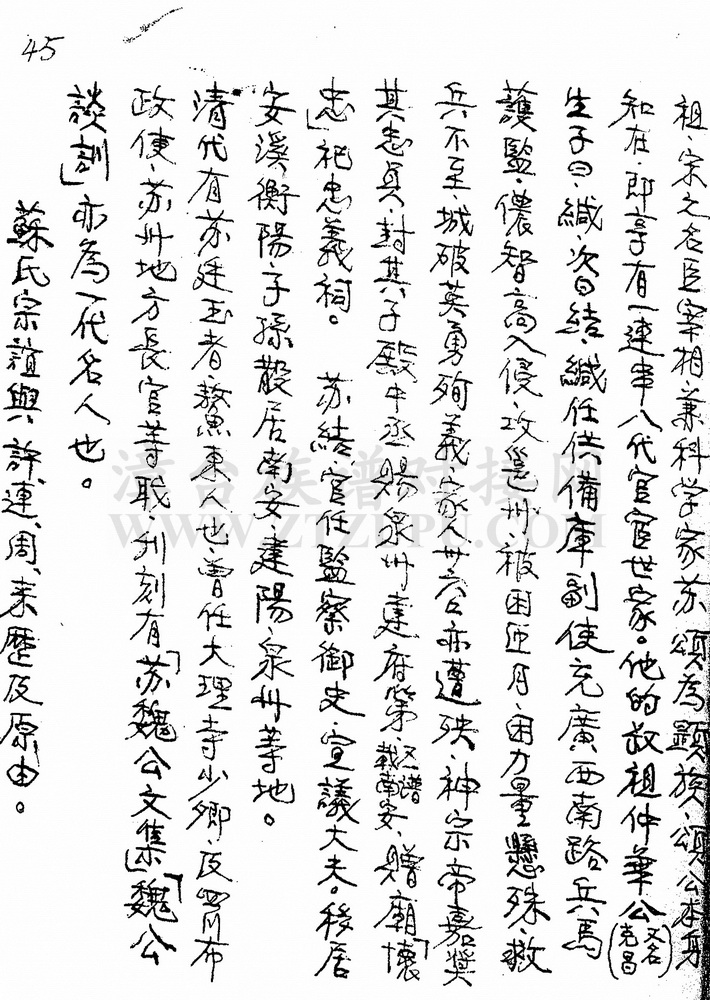 45
祖、宋之名臣宰相、兼科学家苏頌為顕族、頌公本身
知在、即享有一連串八代官宦世家。他的叔祖仲華公(又名克昌)
生子曰、緘、次曰結、緘任供備庫副使充廣西南路兵馬
護監儂智高入侵、攻邕州、被困匝月、困力量懸殊、救
兵不至、城破英勇殉義、家人卅六口亦遭殃、神宗帝嘉獎
其忠貞、封其子殿中丞賜泉州建府第、載南安、贈廟「懷
忠」祀忠義祠。 苏結官任監察御史、宣議大夫。移居
安溪衡陽子孫散居南安、建陽、泉州等地。
清代有苏廷玉者、鰲東人也、曾任大理寺少卿、及四川布
政使、苏州地方長官等职、刋刻有「苏魏公文集」「魏公
談訓」亦為一代名人也。
蘇氏宗誼與許、連、周、来歷及原由。
漳台族谱对接网
WWW.ZTZUPU.COM